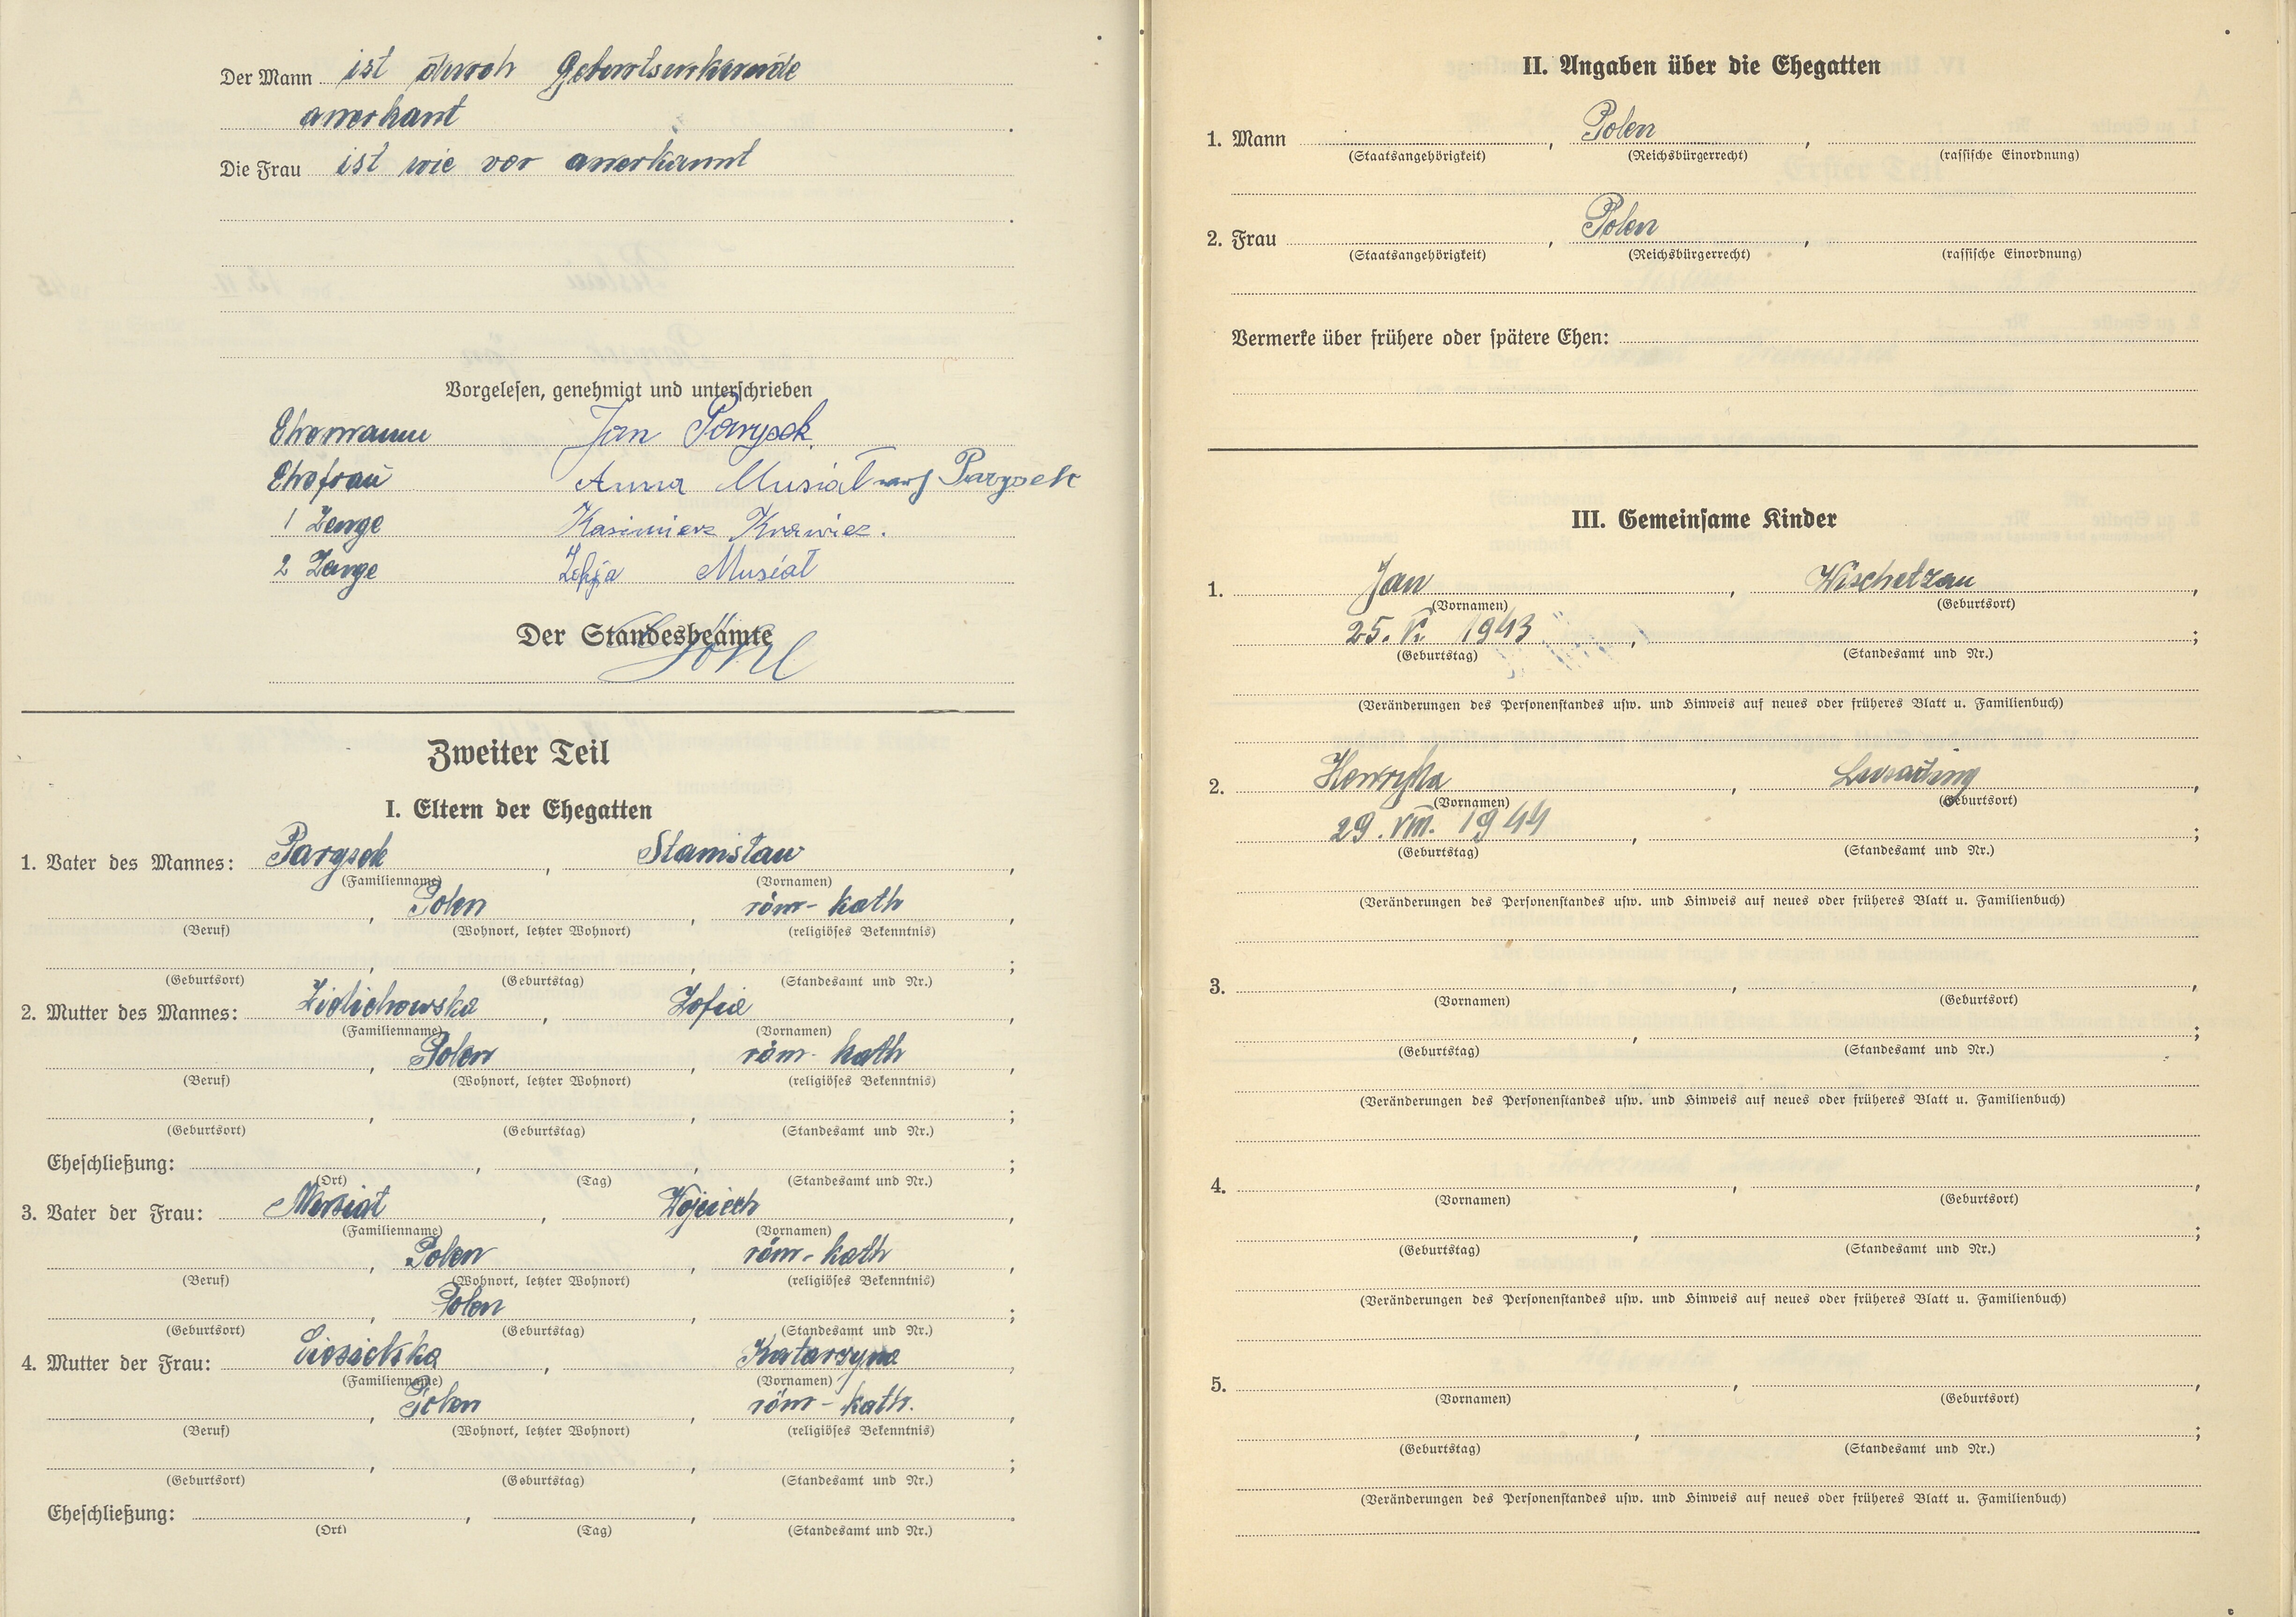 Der Mann ist durch Geburtsurkunde
anerkant
Die Frau ist wie vor anerkannt
Vorgelesen, genehmigt und unterschrieben
Ehemann Jan Parysek
Ehefrau Anna Musiał Parysek
1 Zeuge Kasimierz Krawiec.
2 Zeuge Zofja Musiał
Der Standesbeamte
Zweiter Teil
I. Eltern der Ehegatten
1. Vater des Mannes: Parysek, Stanisław,
(Familienname) (Vornamen)
, Polen, röm-kath,
(Beruf) (Wohnort, letzter Wohnort) (religiöses Bekenntnis)
, , ;
(Geburtsort) (Geburtstag) (Standesamt und Nr.)
2. Mutter des Mannes: , Zofia,
(Familienname) (Vornamen)
, Polen, röm-kath,
(Beruf) (Wohnort, letzter Wohnort) (religiöses Bekenntnis)
, , ;
(Geburtsort) (Geburtstag) (Standesamt und Nr.)
Eheschließung: , , ;
(Ort) (Tag) (Standesamt und Nr.)
3. Vater der Frau: Musiał, Wojciech,
(Familienname) (Vornamen)
, Polen, röm-kath,
(Beruf) (Wohnort, letzter Wohnort) (religiöses Bekenntnis)
, Polen, ;
(Geburtsort) (Geburtstag) (Standesamt und Nr.)
4. Mutter der Frau: , Katarzyna,
(Familienname) (Vornamen)
, Polen, röm-kath.,
(Beruf) (Wohnort, letzter Wohnort) (religiöses Bekenntnis)
, , ;
(Geburtsort) (Geburtstag) (Standesamt und Nr.)
Eheschließung: , , .
(Ort) (Tag) (Standesamt und Nr.)
II. Angaben über die Ehegatten
1. Mann , Polen,
(Staatsangehörigkeit) (Reichsbürgerrecht) (rassische Einordnung)
2. Frau , Polen,
(Staatsangehörigkeit) (Reichsbürgerrecht) (rassische Einordnung)
Vermerke über frühere oder spätere Ehen:
III. Gemeinsame Kinder
1. Jan, Wischetzau,
(Vornamen) (Geburtsort)
25. V. 1943, ;
(Geburtstag) (Standesamt und Nr.)
(Veränderungen des Personenstandes usw. und Hinweis auf neues oder früheres Blatt u. Familienbuch)
2. Henryka, ,
(Vornamen) (Geburtsort)
29. VIII. 1944, ;
(Geburtstag) (Standesamt und Nr.)
(Veränderungen des Personenstandes usw. und Hinweis auf neues oder früheres Blatt u. Familienbuch)
3. , ,
(Vornamen) (Geburtsort)
, ;
(Geburtstag) (Standesamt und Nr.)
(Veränderungen des Personenstandes usw. und Hinweis auf neues oder früheres Blatt u. Familienbuch)
4. , ,
(Vornamen) (Geburtsort)
, ;
(Geburtstag) (Standesamt und Nr.)
(Veränderungen des Personenstandes usw. und Hinweis auf neues oder früheres Blatt u. Familienbuch)
5. , ,
(Vornamen) (Geburtsort)
, ;
(Geburtstag) (Standesamt und Nr.)
(Veränderungen des Personenstandes usw. und Hinweis auf neues oder früheres Blatt u. Familienbuch)